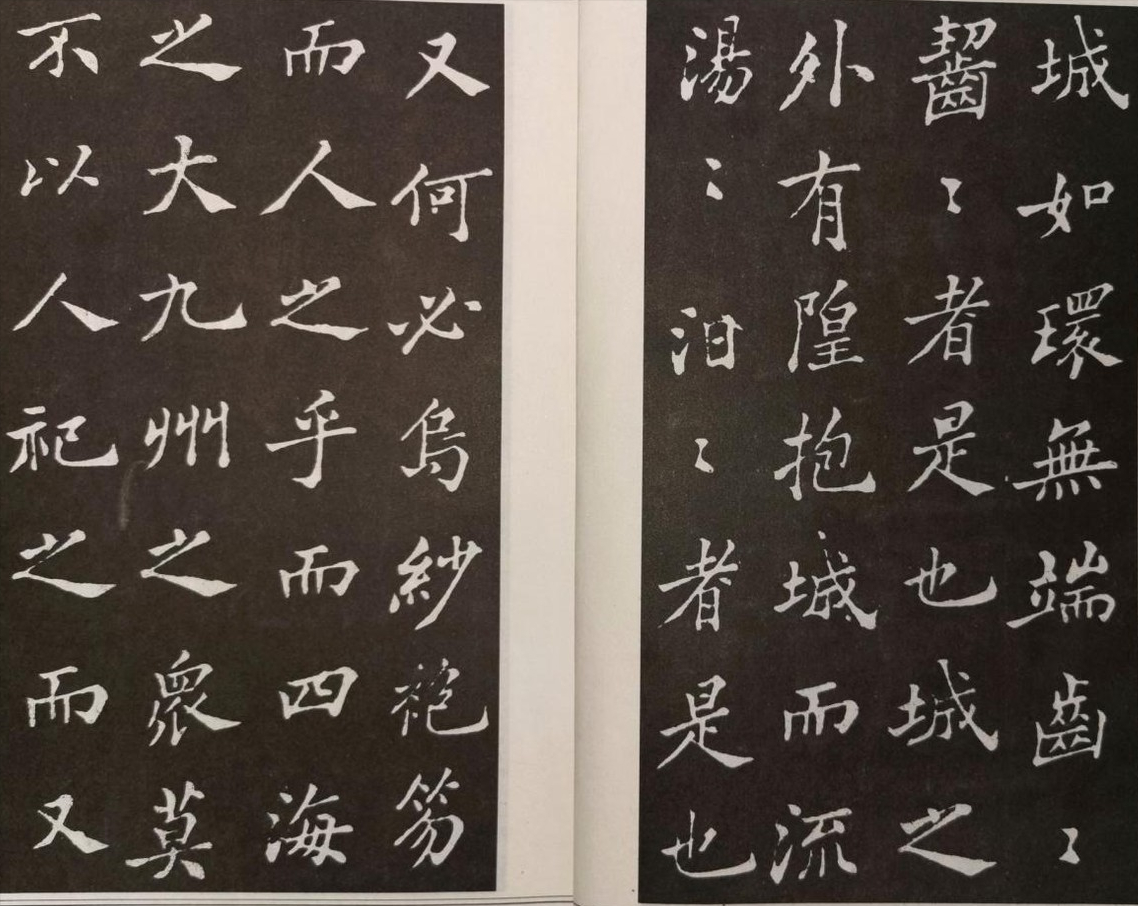 城如環無端齒〻
齧〻者是也城之
外有隍抱城而流
湯〻汨〻者是也
又何必烏紗袍笏
而人之乎而四海
之大九州之衆莫
不以人祀之而又